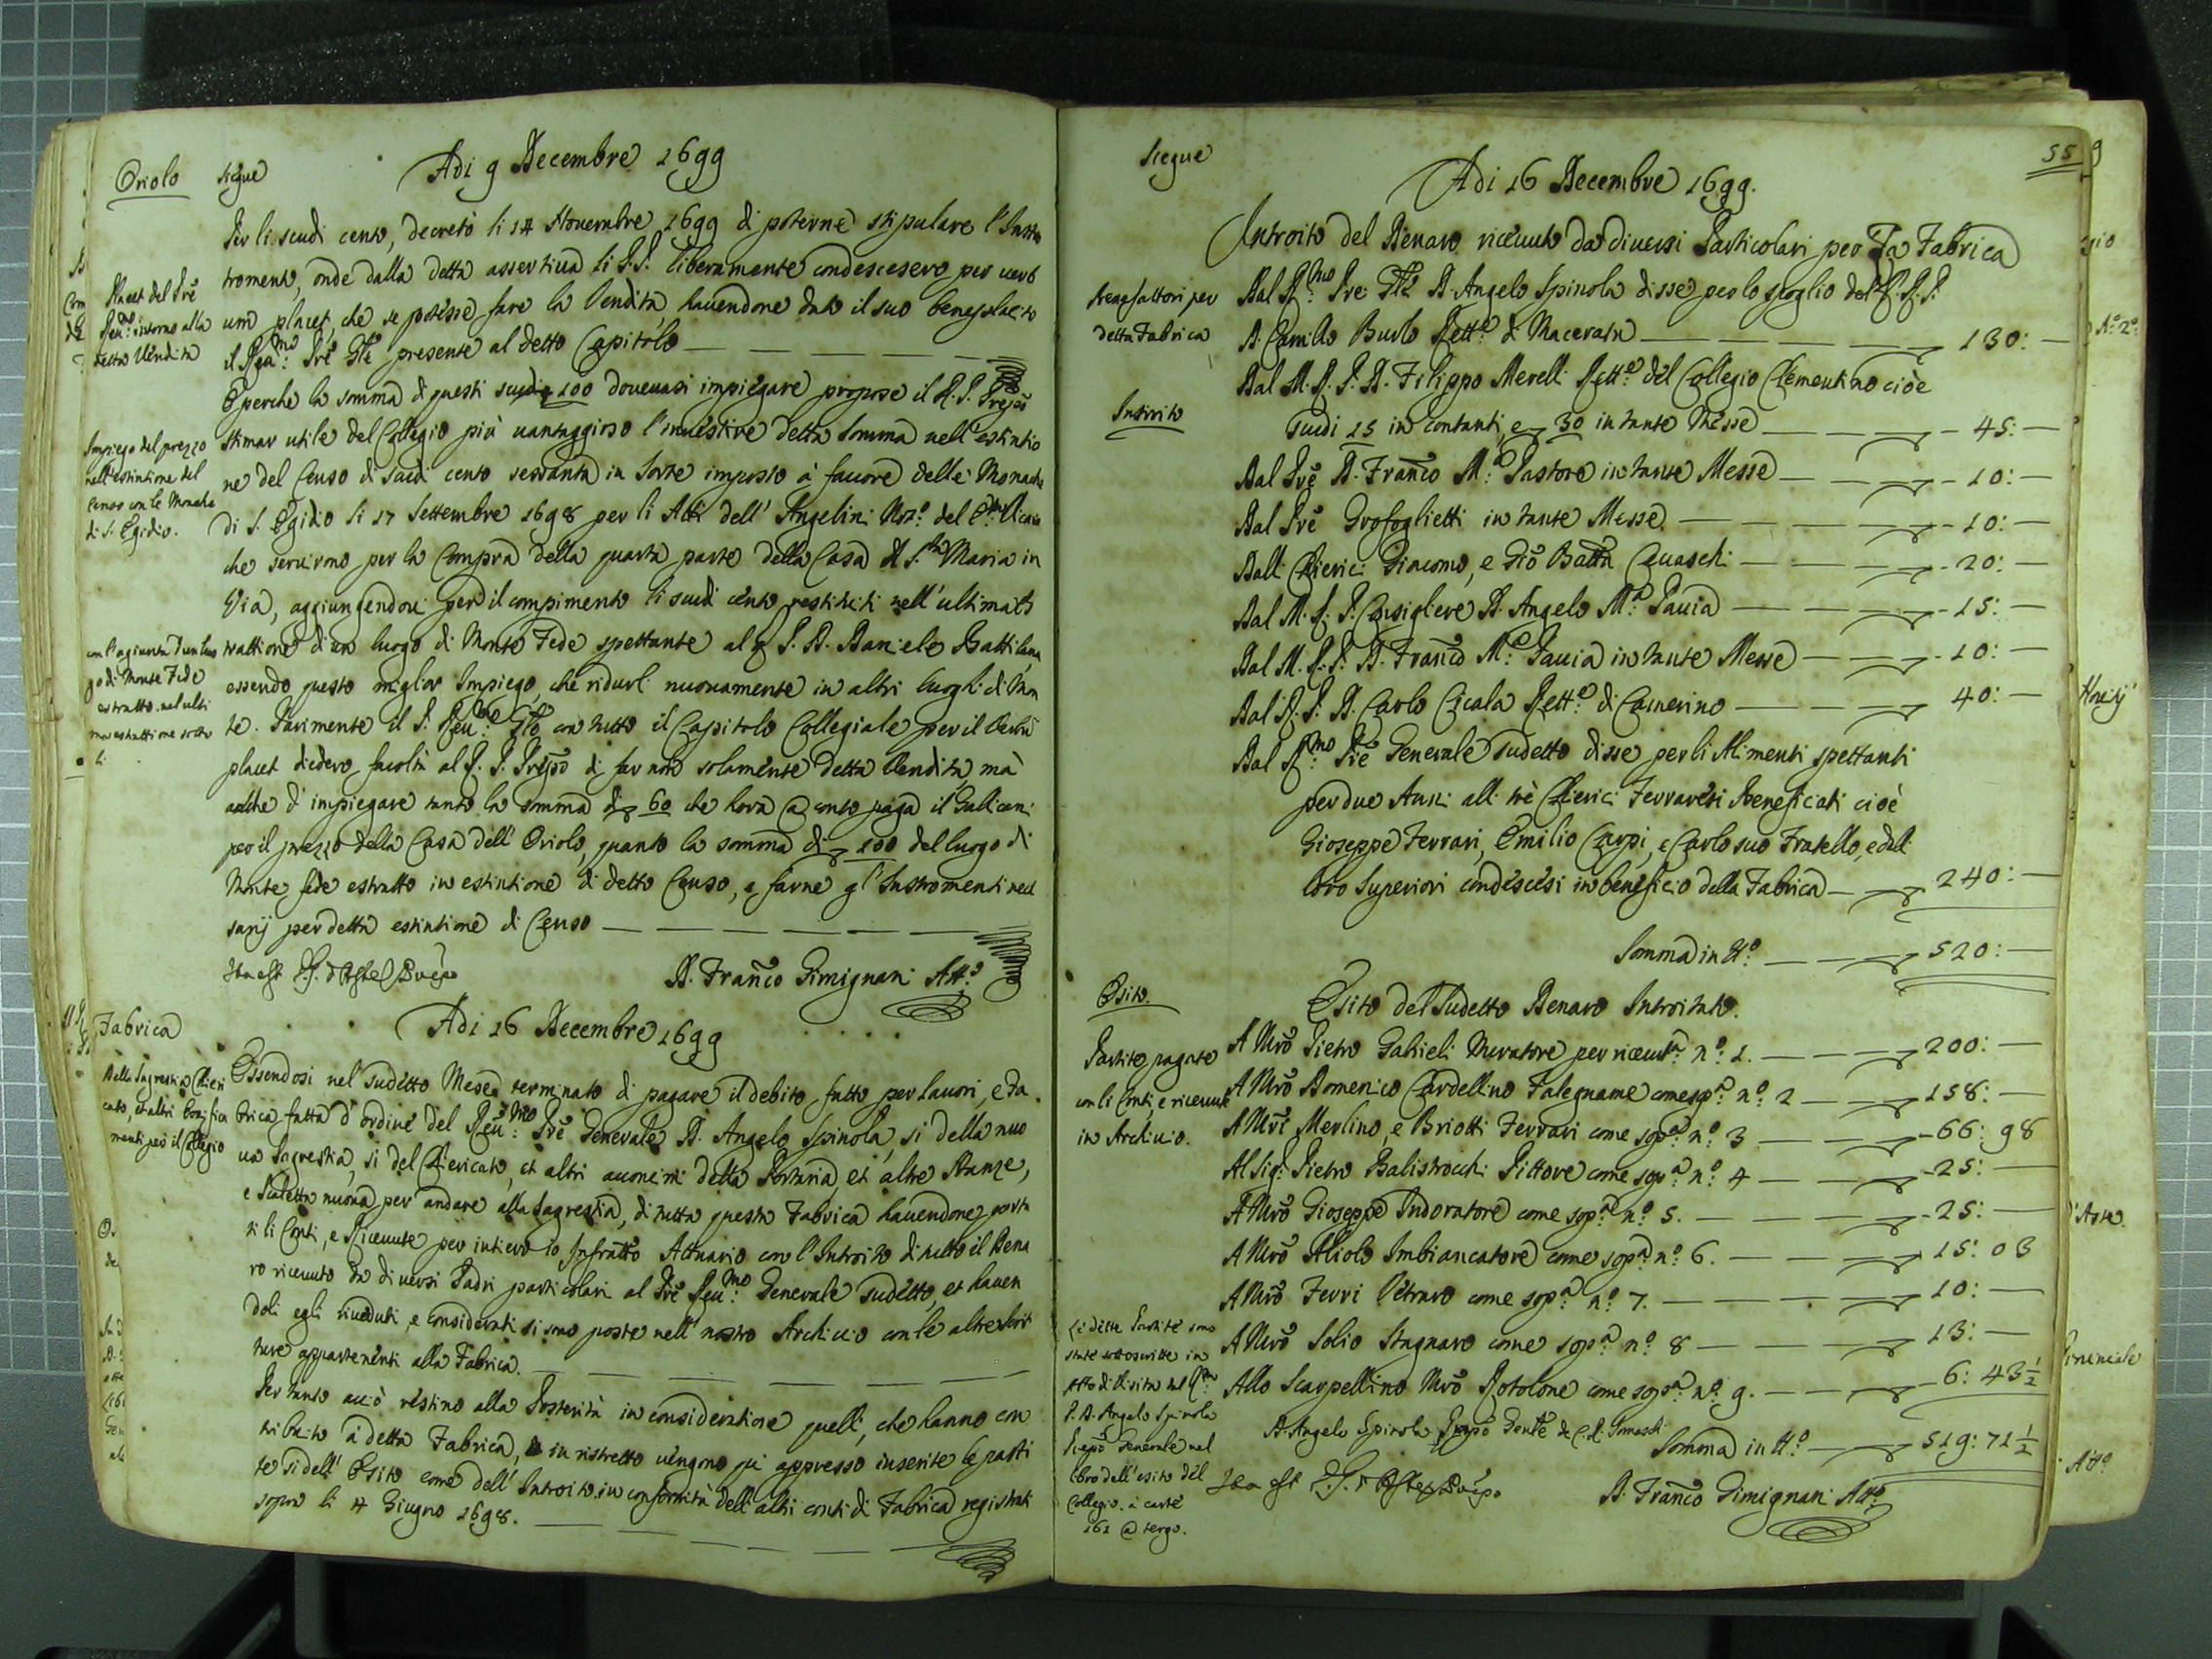 Oriolo
siegue
Adi 9 Decembre 1699
Per li scudi cento, decretò li 14 Novembre 1699 di poterne stipulare l'Instro
tromento, onde dalla detta assertiva li P.P. liberamente condescesero per verb
um placet, che se potesse fare la Vendita havendone dato il suo beneplacito
il Reu.mo Prē Gñle presente al detto Capitolo
E perche la somma di questi scudi 100 doveuasi impiegare propose il R. P. Prepō
stimar utile del Collegio più uantaggioso l'inuestire detta somma nell'estintio
ne del Censo di scudi cento sessanta in sorte imposto à fauore delle Monache
di S. Egidio li 17 Settembre 1698 per li Atti dell' Angelini Not.o del Vicario
che seruirno per la Compra della quarta parte della Casa di S.ta Maria in
Via, aggiungendoui però il compimento li scudi cento restituiti nell'ultima es
trattione di un luogo di Monte Fede spettante al q. P. D. Daniele Battilana
essendo questo miglior Impiego, che ridurli nuouamente in altri luoghi di Mon
te. Parimente il P. Reu.mo Gñle con tutto il Capitolo Collegiale per il Verbū
placet diedero facoltà al P. P. Prepō di far non solamente detta Vendita, mà
anche d'impiegare tanto la somma di 60 che hora a conto paga il Galicani
per il prezzo della Casa dell' Oriolo, quanto la somma di 100 del luogo di
Monte fede estratto in estintione di detto Censo, e farne gl' Instromenti nece
sarij per detta estintione di Censo
Ita est
D. Franco Gimignani Att.o
Placet del Prē
Reu.mo intorno alla
detta Vendita
Impiego del prezzo
nell'estintione del
Censo con le Monache
di S. Egidio.
con l'agiunta d'un luo
go di Monte Fede
estratto nel ulti
ma estrattione sorto
li
Fabrica
Adi 16 Decembre 1699
Della Sagrestia Chieri
cato, et altri bonifica
menti per il Collegio
Essendosi nel sudetto Mese terminato di pagare il debito fatto per lauori, e Fa
brica fatta d'ordine del Reu.mo Prē Generale D. Angelo Spinola, si della nuo
ua Sagrestia, si del Chiericato, et altri acconcimi della Portaria, et altre Stanze,
e Scaletta nuoua per andare alla Sagrestia, di tutta questa Fabrica hauendone porta
ti li Conti, e Riceuute per intiero io Infratto Attuario con l'Introito di tutto il Dena
ro riceuuto da diuersi Padri particolari al Prē Reu.mo Generale sudetto, et hauen
doli egli riueduti, e considerati si sono poste nell' nostro Archiuio con le altre scrit
ture appartenenti alla Fabrica.
Per tanto acciò restino alla Posterità in consideratione quelli, che hanno con
tribuito à detta Fabrica, in ristretto uengono quì appresso inserite le parti
te si dell' Esito come dell' Introito in conformità dell' altri conti di Fabrica registrati
sopra li 4 Giugno 1698.
Siegue
55
Adi 16 Decembre 1699.
Introito del Denaro riceuuto da diuersi Particolari per La Fabrica
Benefattori per
detta Fabrica
Introito
Dal R.mo Pre Gñle D. Angelo Spinola disse per lo spoglio del q. P.
D. Camillo Burlo Rett.e di Macerata 130:
Dal M. R. P. D. Filippo Merelli Rett.e del Collegio Clementino cioè
Scudi 15 in contanti, e 30 in tante Messe 45:
Dal Prē D. Franco M.a Pastore in tante Messe 10:
Dal Prē Grofoglietti in tante Messe 10:
Dalli Chierici Giacomo, e Giō Batta Ceuaschi 20:
Dal M. R. P. Consigliere D. Angelo M.a Pauia 15:
Dal M. R. P. D. Franco M.a Pauia in tante Messe 10:
Dal R. P. D. Carlo Cicala Rett.e di Camerino 40:
Dal R.mo Prē Generale sudetto disse per li Alimenti spettanti
per due Anni alli trè Chierici Ferraresi Beneficiati cioè
Gioseppe Ferrari, Emilio Carpi, e Carlo suo Fratello, e dalli
loro Superiori condescesi in beneficio della Fabrica 240:
Somma in tt.o 520:
Esito.
Esito del Sudetto Denaro Introitato.
Partite pagate
con li Conti, e riceuute
in Archiuio.
A Mrō Pietro Gabrieli Muratore per riceuuta n.o 1. 200:
A Mrō Domenico Cardellino Falegname come sop.a n.o 2 158:
A Mri Merlino, e Briotti Ferrari come sop.a n.o 3 66: 98
Al Sig.r Pietro Balistrocchi Pittore come sop.a n.o 4 25:
A Mrō Gioseppe Indoratore come sop.a n.o 5. 25:
A Mrō Aliolo Imbiancatore come sop.a n.o 6. 15: 03
A Mrō Ferri Vetraro come sop.a n.o 7. 10:
A Mrō Solio Stagnaro come sop.a n.o 8 13:
Allo Scarpellino Mrō Rotolone come sop.a n.o 9. 6: 43½
Le dette Partite sono
state sottoscritte in
Atto di Visita dal R.mo
P. D. Angelo Spinola
Prepō Generale nel
libro dell'esito del
Collegio à carte
161 a tergo.
D. Angelo Spinola Prepō Genle de C. R. Somaschi
Somma in tt.o 519: 71½
Ita est
D. Franco Gimignani Att.o